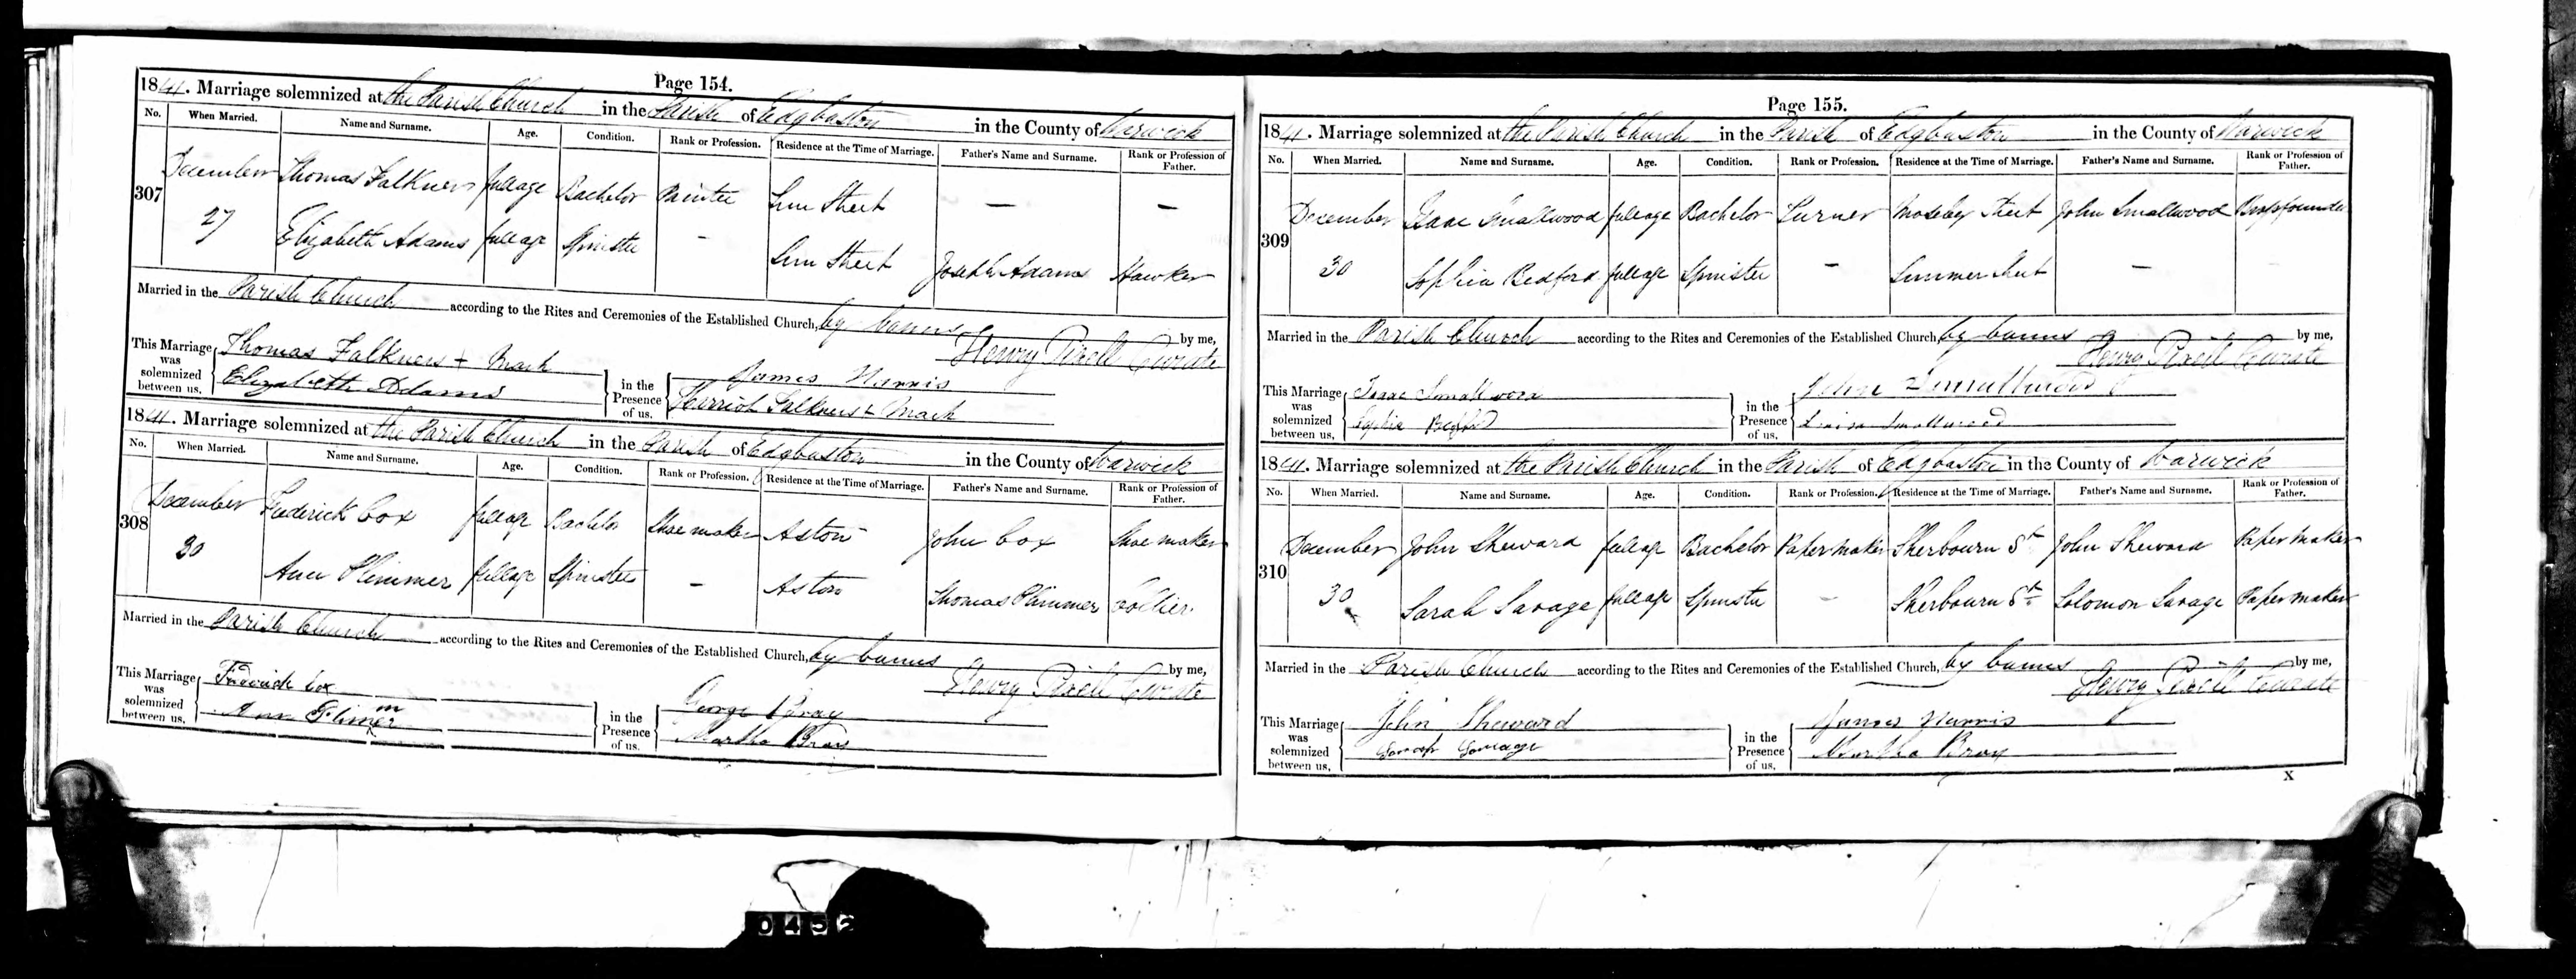 Page 154.
1841. Marriage solemnized at the Parish Church in the Parish of Edgbaston in the County of Warwick
No. When Married. Name and Surname. Age. Condition. Rank or Profession. Residence at the Time of Marriage. Father's Name and Surname. Rank or Profession of Father.
307 December 27 Thomas Falkners full age Bachelor Painter Lum Street — —
Elizabeth Adams full age Spinster - Lum Street Joseph Adams Hawker
Married in the Parish Church according to the Rites and Ceremonies of the Established Church, by banns by me,
Henry Pixell Curate
This Marriage was solemnized between us, Thomas Falkners + Mark
Elizabeth Adams
in the Presence of us. James Harris
Harriot Falkners + Mark
1841. Marriage solemnized at the Parish Church in the Parish of Edgbaston in the County of Warwick
No. When Married. Name and Surname. Age. Condition. Rank or Profession. Residence at the Time of Marriage. Father's Name and Surname. Rank or Profession of Father.
308 December 30 Frederick Cox full age Bachelor Shoe maker Aston John Cox Shoe maker
Ann Plimmer full age Spinster - Aston Thomas Plimmer Collier.
Married in the Parish Church according to the Rites and Ceremonies of the Established Church, by banns by me,
Henry Pixell Curate
This Marriage was solemnized between us, Fredrick Cox
Ann Plimmer
in the Presence of us. George Bray
Martha Bray
Page 155.
1841. Marriage solemnized at the Parish Church in the Parish of Edgbaston in the County of Warwick
No. When Married. Name and Surname. Age. Condition. Rank or Profession. Residence at the Time of Marriage. Father's Name and Surname. Rank or Profession of Father.
309 December 30 Isaac Smallwood full age Bachelor Turner Moseley Street John Smallwood Brassfounder
Sophia Bedford full age Spinster - Summer Street —
Married in the Parish Church according to the Rites and Ceremonies of the Established Church, by banns by me,
Henry Pixell Curate
This Marriage was solemnized between us, Isaac Smallwood
Sophia Bedford
in the Presence of us. John Smallwood
Louisa Smallwood
1841. Marriage solemnized at the Parish Church in the Parish of Edgbaston in the County of Warwick
No. When Married. Name and Surname. Age. Condition. Rank or Profession. Residence at the Time of Marriage. Father's Name and Surname. Rank or Profession of Father.
310 December 30 John Sheward full age Bachelor Paper maker Sherbourn St John Sheward Paper maker
Sarah Savage full age Spinster — Sherbourn St Solomon Savage Paper maker
Married in the Parish Church according to the Rites and Ceremonies of the Established Church, by banns by me,
Henry Pixell Curate
This Marriage was solemnized between us, John Sheward
Savage
in the Presence of us. James Harris
Martha Bray
X
0452